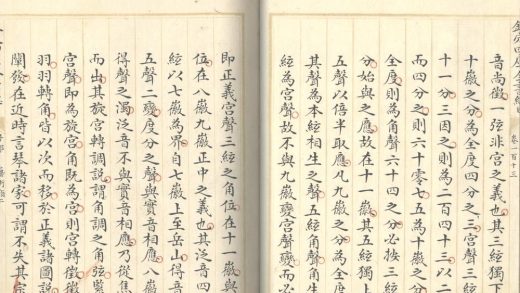 卷一百十三
音尚徵一弦非宮之義也其三經獨下
十徽之分為全度四分之三宮聲三經
十一分三因之則為二百四十三以二
而四分之則六十零七五為十徽之分
全度則為角聲六十四之分必按三經
分始與之應故在十一徽其五經獨上
五聲以倍半取應凡九徽之分為全度
其聲為本經相生之聲五經角聲生
經為宮聲故不與九徽變宮聲而必
即正義宮聲三經之角位在十一徽與
位在八徽九徽正中之義也其泛音四
經以七徽為界自七徽上至岳山得音
五聲二變度分之聲與實音相應八徽
得聲之濁泛音不與實音相應乃從焦
而出其旋宮轉調說謂角調之角弦緊
宮聲即為旋宮角既為宮則宮轉徵徵
羽羽轉角皆以次而移於正義諸圖說
闡發在近時言琴諸家可謂不失其宗